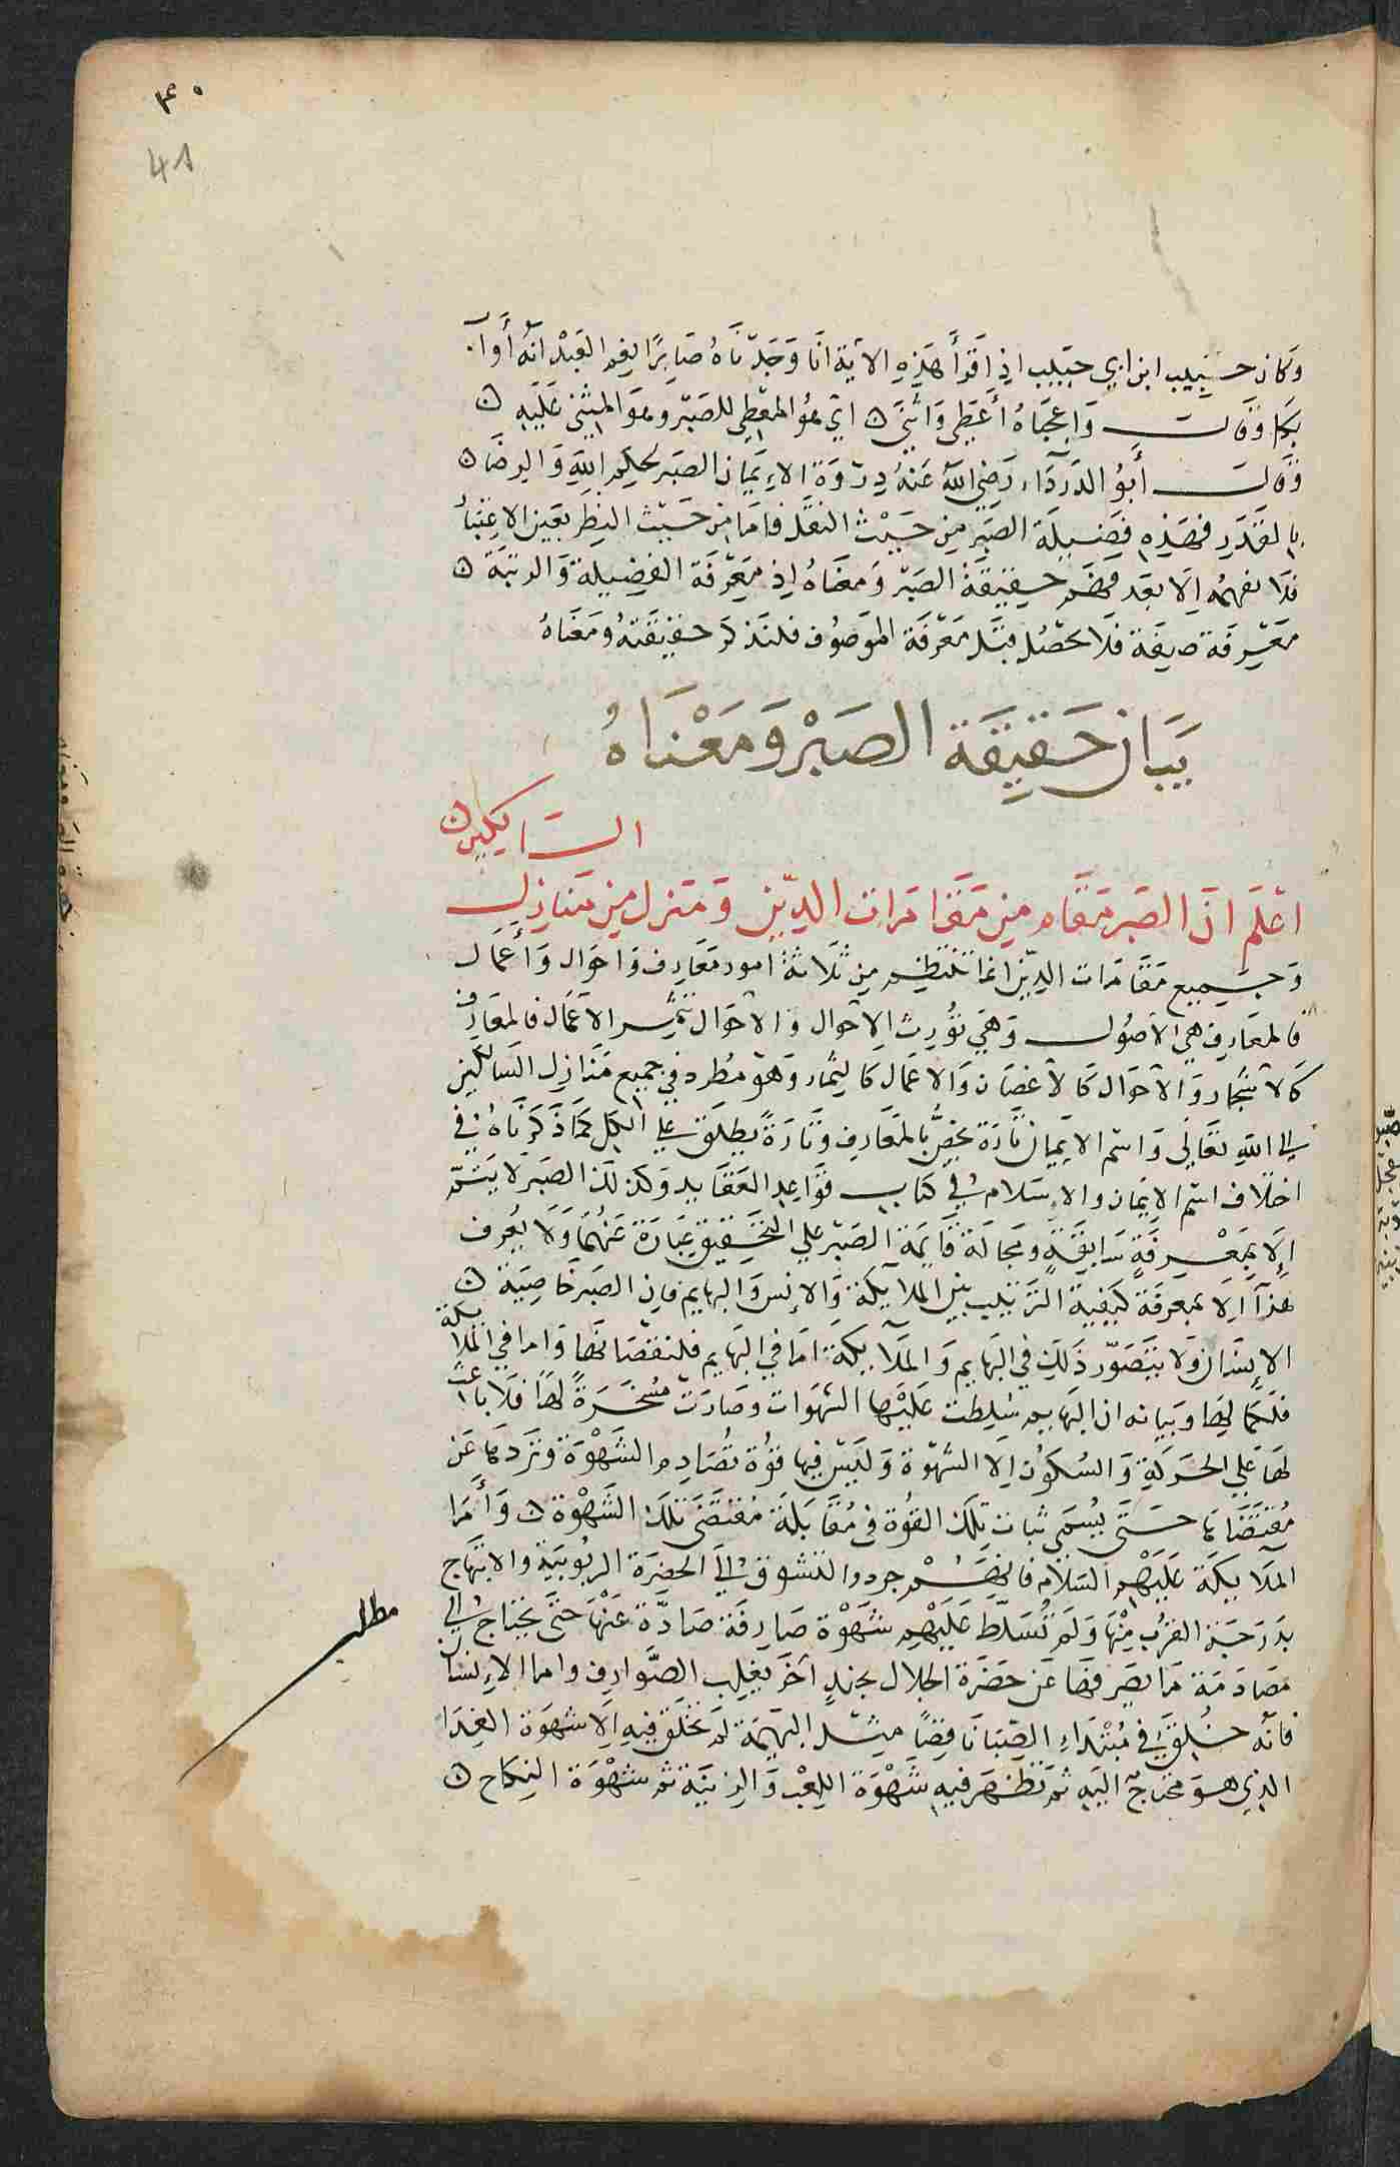 ٤٠
41
وكان حبيب ابن ابي حبيب اذا قرأ هذه الاية انا وجدناه صابرا نعم العبد انه أواب
بكا وقال واعجباه أعطى واثنى اي هو المعطي للصبر وهو المثني عليه
وقال أبو الدرداء رضي الله عنه دروة الايمان الصبر لحكم الله والرضا
بالقدر فهذه فضيلة الصبر من حيث النقل فاما من حيث النظر بعين الاعتبار
فلا تفهمه الا بعد فهم حقيقة الصبر ومعناه اذ معرفة الفضيلة والرتبة
معرفة صفة فلا تحصل قبل معرفة الموصوف فلنذكر حقيقته ومعناه
بيان حقيقة الصبر ومعناه
السايكين
اعلم ان الصبر مقام من مقامات الدين ومنزل من منازل
وجميع مقامات الدين انما تنتظم من ثلاثة امور معارف واحوال وأعمال
فالمعارف هي الأصول وهي تورث الاحوال والاحوال تثمر الاعمال فالمعارف
كالاشجار والاحوال كالاغصان والاعمال كالثمار وهو مطرد في جميع منازل السالكين
الي الله تعالى واسم الايمان تارة يختص بالمعارف وتارة يطلق على الكل كما ذكرناه في
اختلاف اسم الايمان والاسلام في كتاب قواعد العقايد وكذلك الصبر لا يتم
الا بمعرفة سابقة وبحالة قايمة الصبر علي التحقيق عبارة عنهما ولا يعرف
هذا الا بمعرفة كيفية الترتيب بين الملايكة والانس والبهايم فان الصبر خاصية
الانسان ولا يتصور ذلك في البهايم والملايكة اما في البهايم فلنقصانها واما في الملايكة
فلكمالها وبيانه ان البهايم سلطت عليها الشهوات وصارت مسخرة لها فلا باعث
لها علي الحركة والسكون الا الشهوة وليس فيها قوة تصادم الشهوة وتردها عن
مقتضاها حتى يسمى ثبات تلك القوة في مقابلة مقتضى تلك الشهوة وأما
الملايكة عليهم السلام فانهم جردوا للتشوق إلى الحضرة الربوبية والابتهاج
بدرجة القرب منها ولم تسلط عليهم شهوة صارفة صادة عنها حتى يحتاج الى
مصادمة ما يصرفها عن حضرة الجلال بجند آخر يغلب الصوارف واما الانسان
فانه خلق في مبتداء الصبا ناقصا مثل البهيمة لم يخلق فيه الا شهوة الغذا
الذي هو محتاج اليه ثم تظهر فيه شهوة اللعب والزينة ثم شهوة النكاح
مطلب